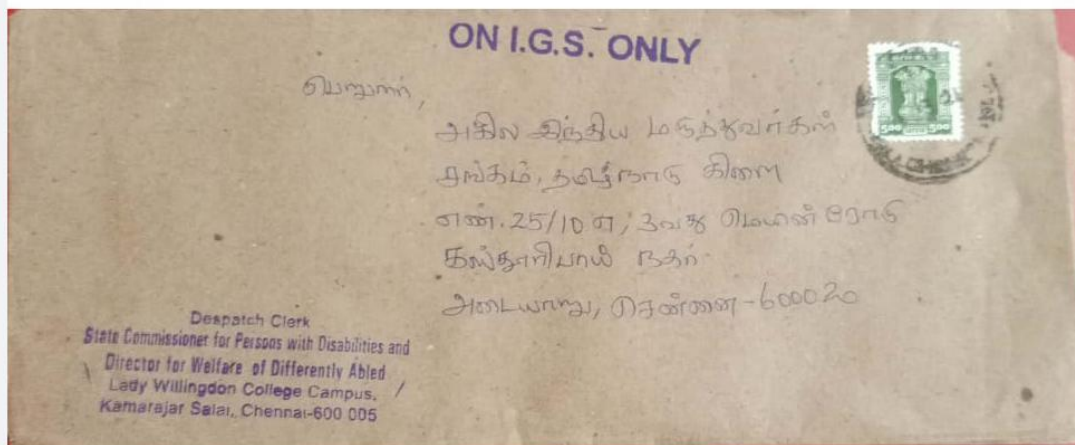 ON I.G.S. ONLY
பெறுநர்,
அகில இந்திய மருத்துவர்கள்
சங்கம், தமிழ்நாடு கிளை
எண்.25/10 எ, 3வது மெயின் ரோடு
கஸ்தூரிபாய் நகர்
அடையாறு, சென்னை-600020
5.00 5.00
Despatch Clerk
State Commissioner for Persons with Disabilities and
Director for Welfare of Differently Abled
Lady Willingdon College Campus,
Kamarajar Salai, Chennai-600 005